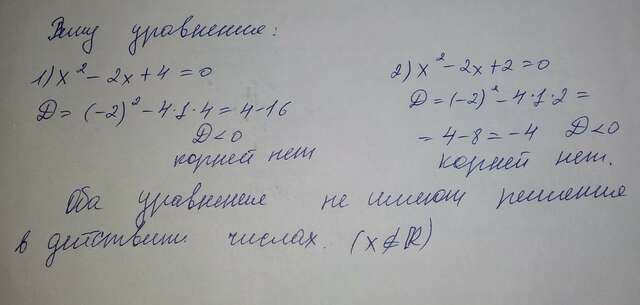 Решу уравнение:
1) x² - 2x + 4 = 0
D = (-2)² - 4·1·4 = 4 - 16
D < 0
корней нет
2) x² - 2x + 2 = 0
D = (-2)² - 4·1·2 =
= 4 - 8 = -4 D < 0
корней нет.
Оба уравнение не имеют решение
в действит числах. (x ∉ ℝ)